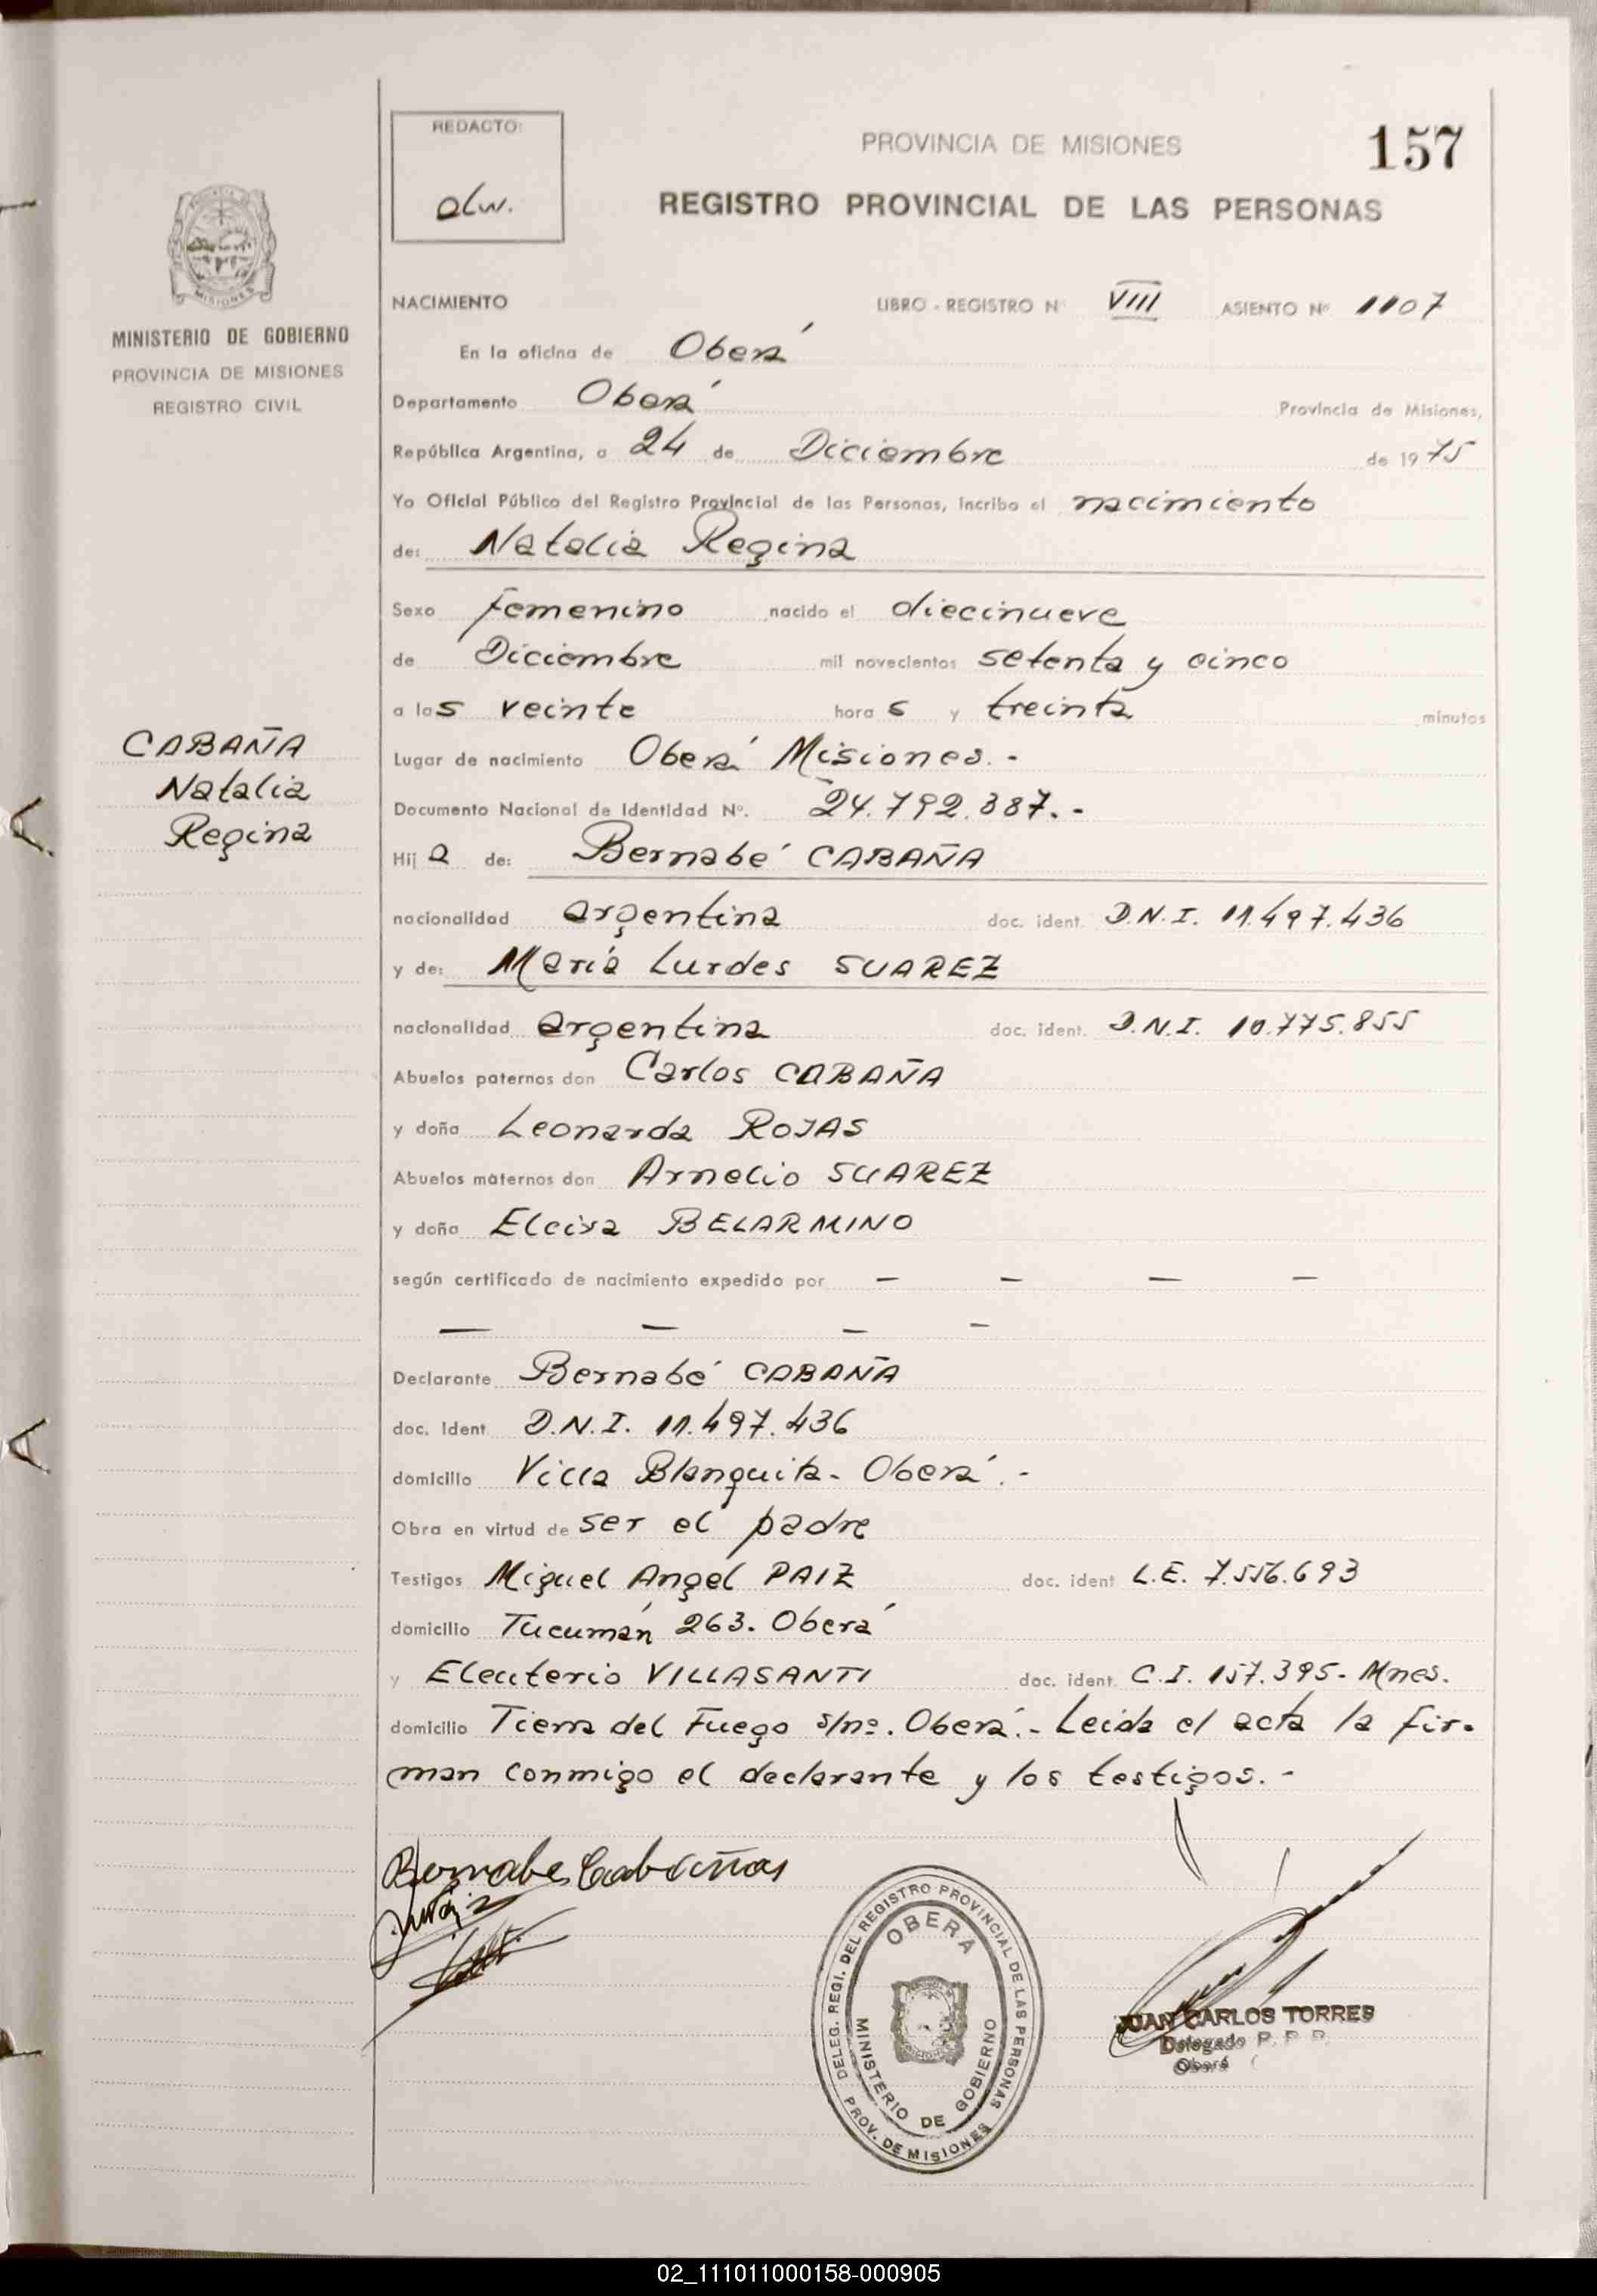 REDACTO:
alw.
PROVINCIA DE MISIONES
157
REGISTRO PROVINCIAL DE LAS PERSONAS
MISIONES
MINISTERIO DE GOBIERNO
PROVINCIA DE MISIONES
REGISTRO CIVIL
CABAÑA
Natalia
Regina
NACIMIENTO LIBRO - REGISTRO Nº VIII ASIENTO Nº 1107
En la oficina de Oberá
Departamento Oberá Provincia de Misiones,
República Argentina, a 24 de Diciembre de 1975
Yo Oficial Público del Registro Provincial de las Personas, incribo el nacimiento
de: Natalia Regina
Sexo femenino nacido el diecinueve
de Diciembre mil novecientos setenta y cinco
a las veinte horas y treinta minutos
Lugar de nacimiento Oberá Misiones.-
Documento Nacional de Identidad Nº. 24.792.387.-
Hija de: Bernabé CABAÑA
nacionalidad argentina doc. ident. D.N.I. 11.497.436
y de: María Lurdes SUAREZ
nacionalidad argentina doc. ident. D.N.I. 10.775.855
Abuelos paternos don Carlos CABAÑA
y doña Leonarda ROJAS
Abuelos maternos don Arnelio SUAREZ
y doña Elcira BELARMINO
según certificado de nacimiento expedido por — — — —
— — — —
Declarante Bernabé CABAÑA
doc. ident D.N.I. 11.497.436
domicilio Villa Blanquita- Oberá.-
Obra en virtud de ser el padre
Testigos Miguel Angel PAIZ doc. ident L.E. 7.556.693
domicilio Tucumán 263. Oberá
y Eleuterio VILLASANTI doc. ident. C.I. 157.395- Mnes.
domicilio Tierra del Fuego s/nº. Oberá.- Leida el acta la fir-
man conmigo el declarante y los testigos.-
Bernabe Cabañas
DELEG. REGI. DEL REGISTRO PROVINCIAL DE LAS PERSONAS
PROV. DE MISIONES
OBERA
MINISTERIO DE GOBIERNO
JUAN CARLOS TORRES
Delegado R. P. P.
Oberá
02_111011000158-000905